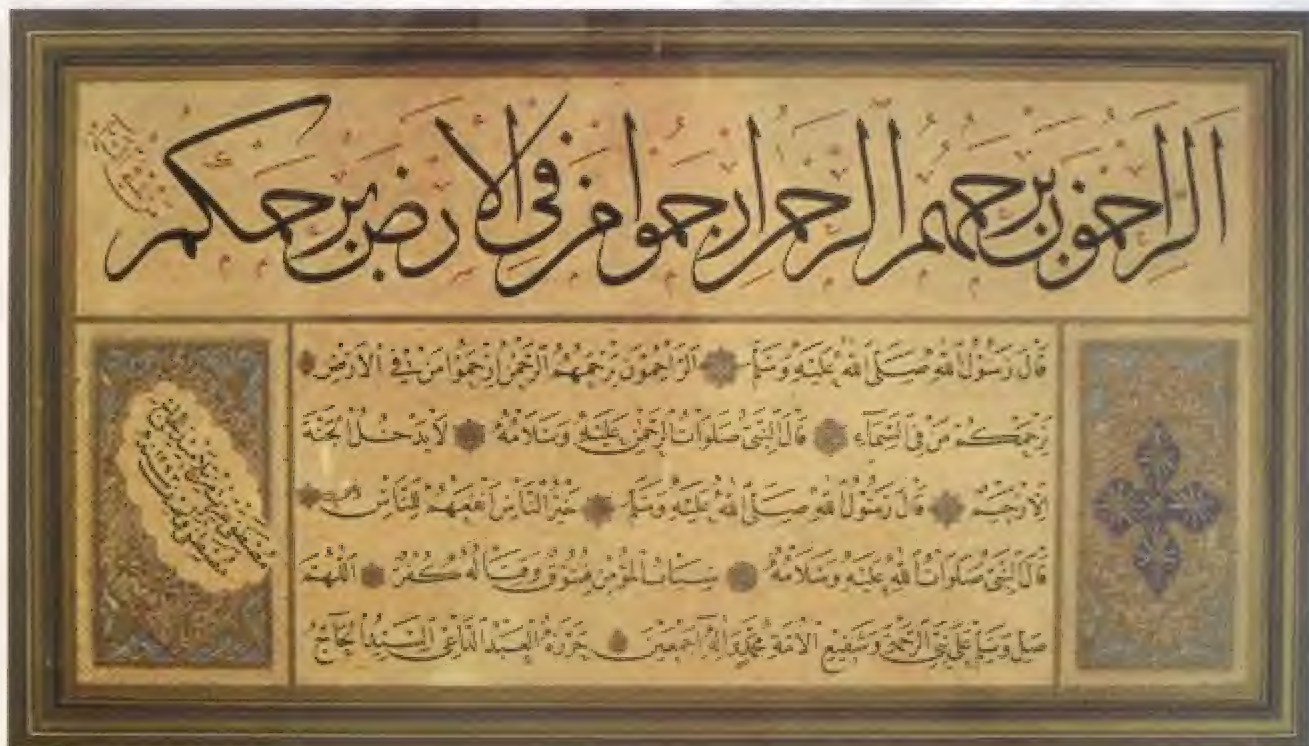 الراحمون يرحمهم الرحمن ارحموا من في الأرض يرحمكم
قَالَ رَسُولُ اللهِ صَلَّى اللهُ عَلَيْهِ وَسَلَّمَ الرَّاحِمُونَ يَرْحَمُهُمُ الرَّحْمٰنُ ارْحَمُوا مَنْ فِي الْاَرْضِ
يَرْحَمْكُمْ مَنْ فِي السَّمَاءِ قَالَ النَّبِيُّ صَلَوَاتُ الرَّحْمٰنِ عَلَيْهِ وَسَلَامُهُ لَا يَدْخُلُ الْجَنَّةَ
اِلَّا رَحِيمٌ قَالَ رَسُولُ اللهِ صَلَّى اللهُ عَلَيْهِ وَسَلَّمَ خَيْرُ النَّاسِ اَنْفَعُهُمْ لِلنَّاسِ
قَالَ النَّبِيُّ صَلَوَاتُ اللهِ عَلَيْهِ وَسَلَامُهُ سِبَابُ الْمُؤْمِنِ فُسُوقٌ وَقِتَالُهُ كُفْرٌ اَللّٰهُمَّ
صَلِّ وَسَلِّمْ عَلَى نَبِيِّ الرَّحْمَةِ وَشَفِيعِ الْاُمَّةِ مُحَمَّدٍ وَآلِهِ اَجْمَعِينَ حَرَّرَهُ الْعَبْدُ الدَّاعِي السَّيِّدُ الْحَاجُّ